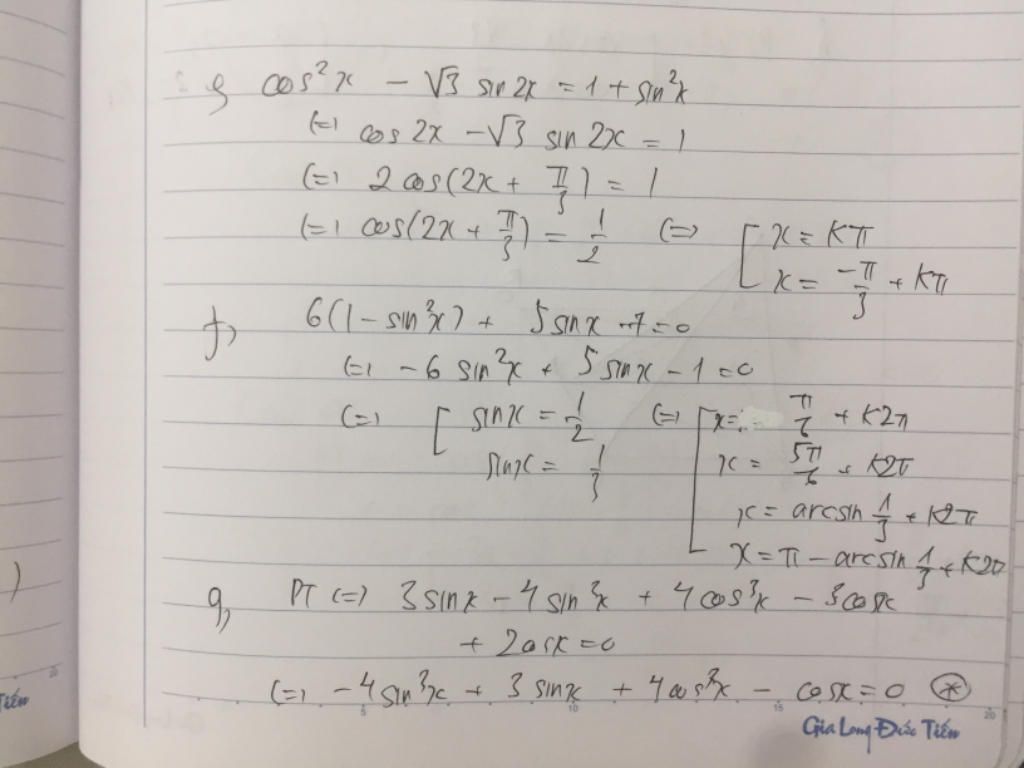 e, cos²x - √3 sin2x = 1 + sin²x
(=) cos2x - √3 sin2x = 1
(=) 2cos(2x + π/3) = 1
(=) cos(2x + π/3) = 1/2 (=) [ x = Kπ
x = -π/3 + Kπ
f, 6(1 - sin²x) + 5sinx - 7 = 0
(=) -6 sin²x + 5sinx - 1 = 0
(=) [ sinx = 1/2 (=) [ x = π/6 + K2π
sinx = 1/3 x = 5π/6 + K2π
x = arcsin 1/3 + K2π
x = π - arcsin 1/3 + K2π
g, PT (=) 3sinx - 4sin³x + 4cos³x - 3cosx
+ 2cosx = 0
(=) -4sin³x + 3sinx + 4cos³x - cosx = 0 (*)
Gia Long Đức Tiến